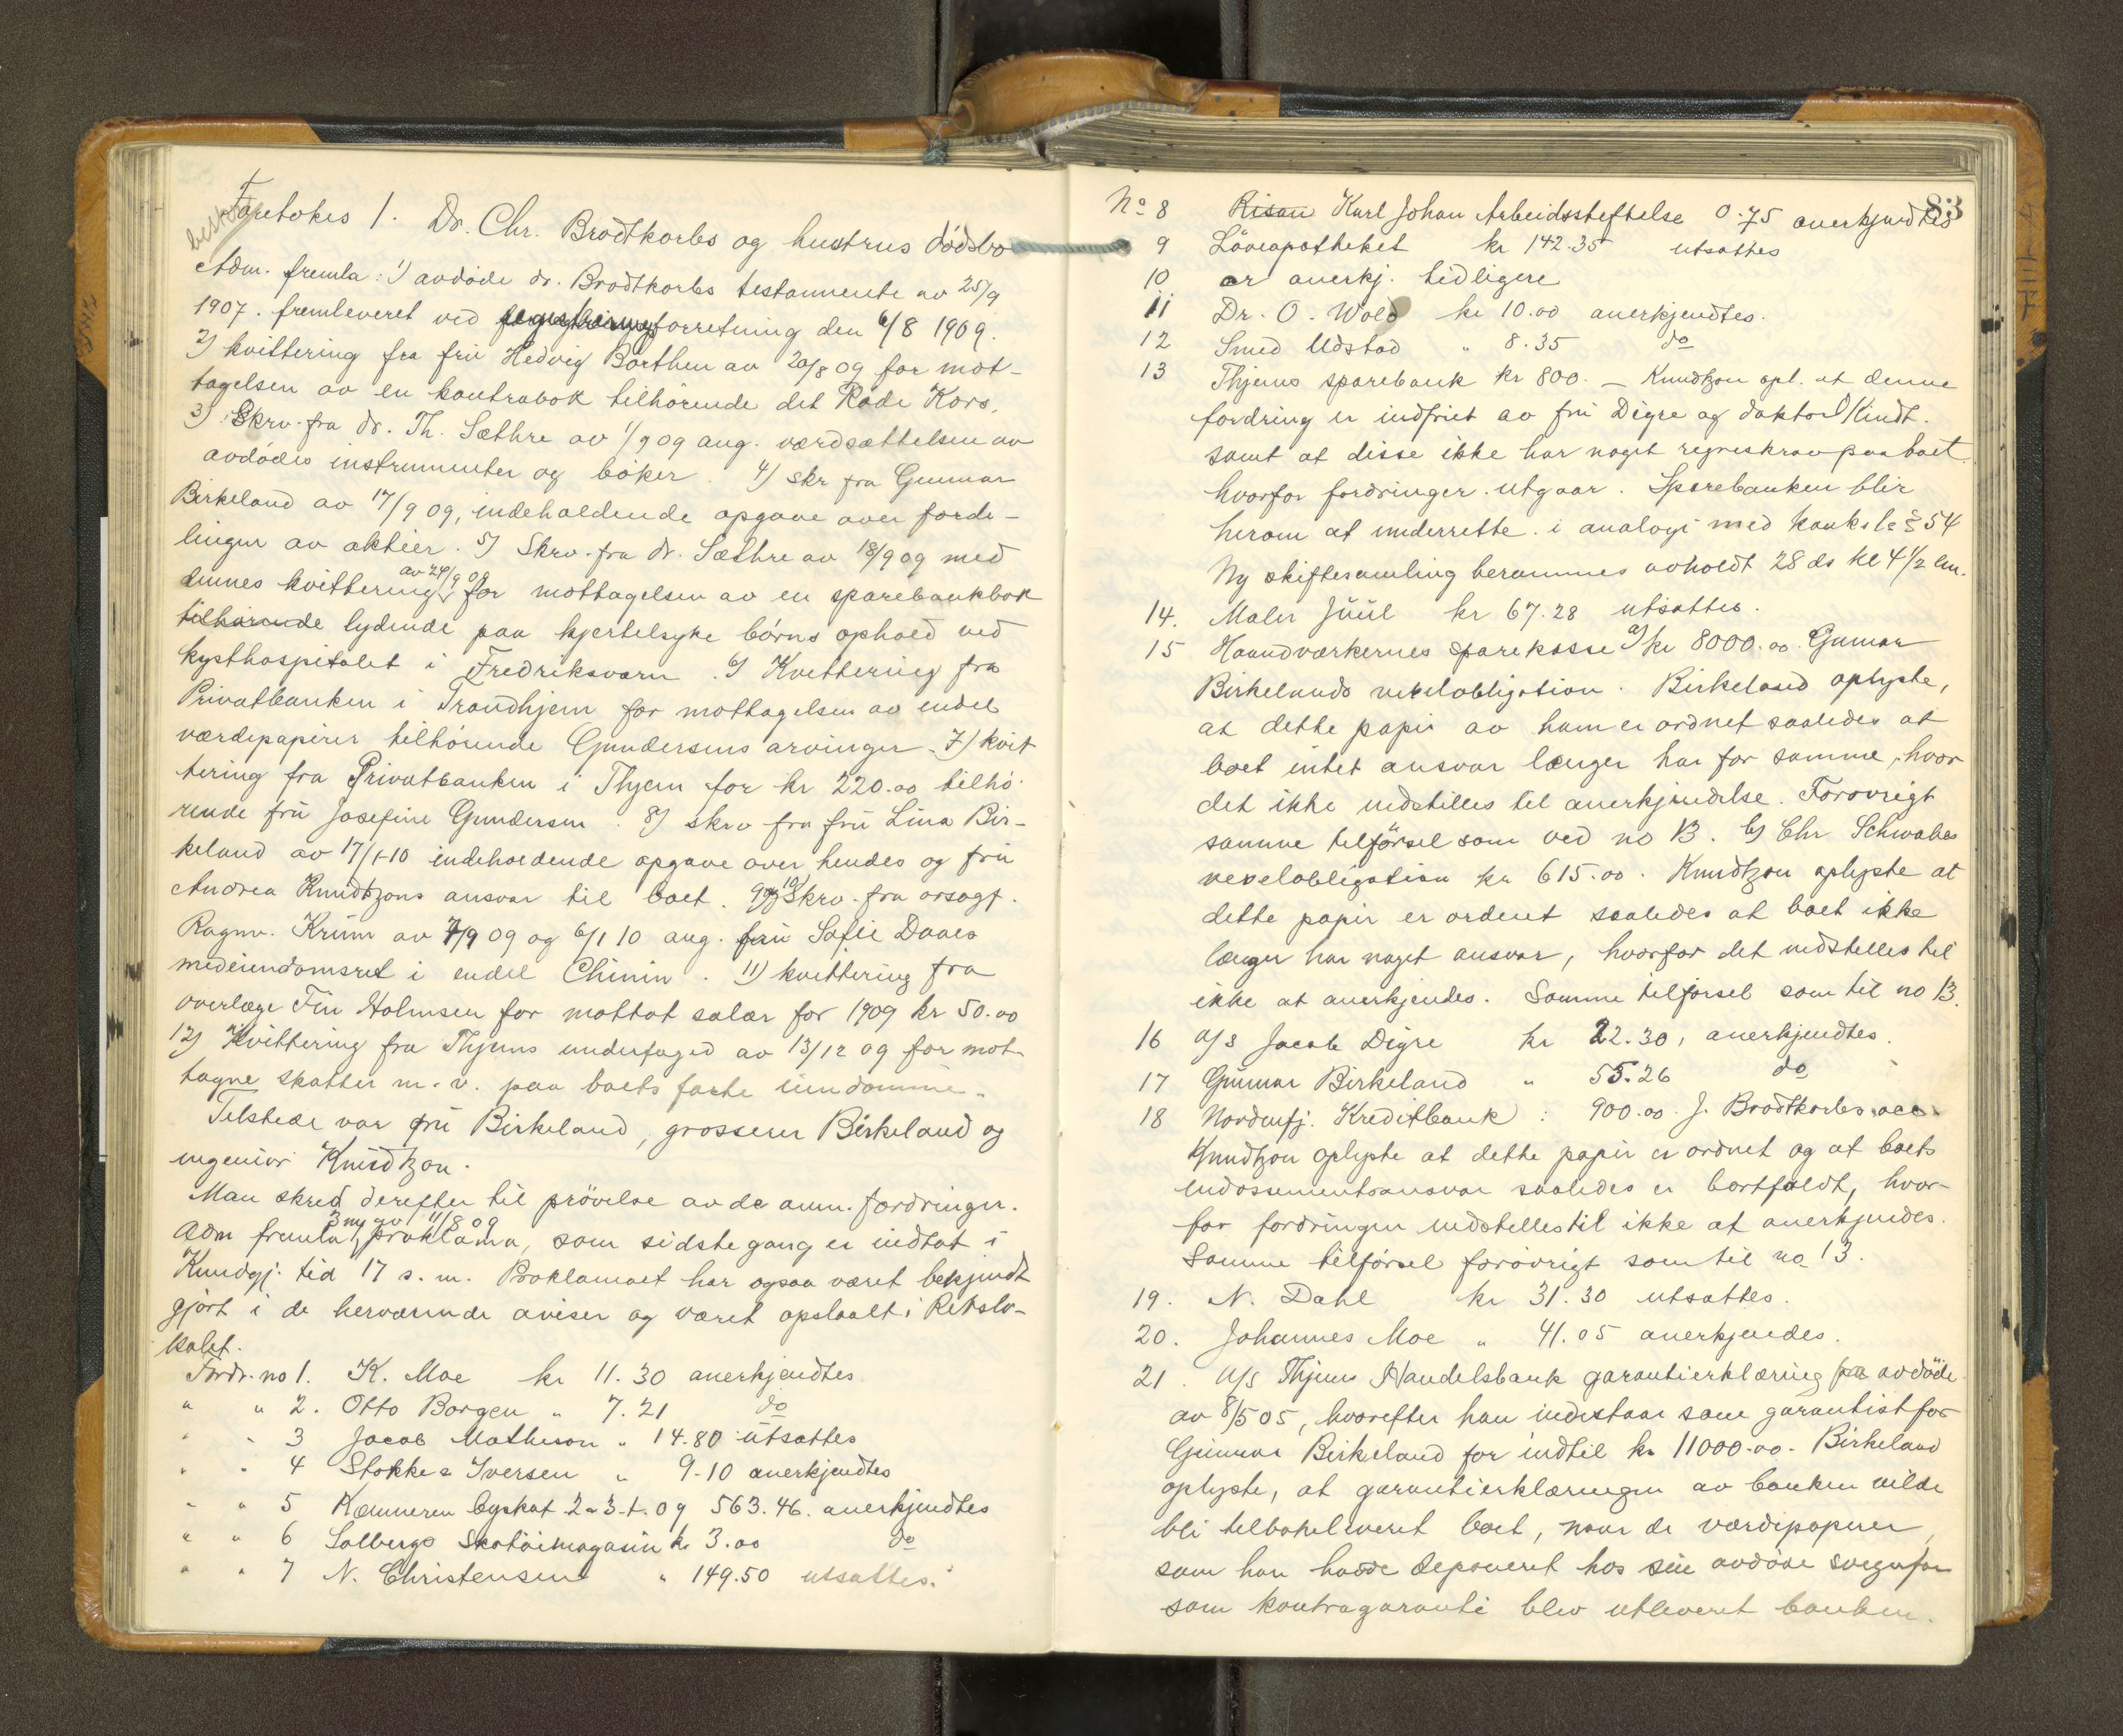 Foretokes 1. Dr. Chr. Brodtkorbs og hustrus dödsbo
Adm. fremla: 1) avdöde dr. Brodtkorbs testamente av 25/9
1907. fremleveret ved registreringsforretning den 6/8 1909.
2) kvittering fra frü Hedvig Borthen av 20/8 09 for mot-
tagelsen av en kontrabok tilhörende det Röde Kors.
3) Skrv. fra dr. Th. Sæthre av 1/9 09 ang. værdsættelsen av
avdödes instrumenter og böker. 4) skr fra Gunnar
Birkeland av 17/9 09, indeholdende opgave over forde-
linger av aktier. 5) Skrv. fra dr. Sæthre av 18/9 09 med
dennes kvittering av 24/9 09 for mottagelsen av en sparebankbok
tilhörende lydende paa kjertelsyke börns ophold ved
kysthospitalet i Fredriksværn. 6) Kvittering fra
Privatbanken i Trondhjem for mottagelsen av endel
værdipapirer tilhörende Gundersens arvinger. 7) kvit
tering fra Privatbanken i Thjem for kr 220.00 tilhö-
rende frü Josefine Gundersen. 8) skrv fra frü Lina Bir-
keland av 17/1-10 indeholdende opgave over hendes og frü
Andrea Knudtzons ansvar til boet. 9) og 10) Skrv. fra orsagf.
Ragnv. Krüm av 7/9 09 og 6/1 10 ang. frü Sofie Daaes
medeiendomsret i endel Chinin. 11) kvittering fra
overlæge Fin Holmsen for mottat salær for 1909 kr 50.00
12) Kvittering fra Thjems underfoged av 13/12 09 for mot-
tagne skatter m. v. paa boets faste eiendomme.
Tilstede var frü Birkeland, grosserer Birkeland og
ingeniör Knüdtzon.
Man skred derefter til prövelse av de anm. fordringer.
Adm fremla 3 ny av 11/8 09 proklama, som sidste gang er indtat i
Kundgj. tid 17 s. m. Proklamaet har ogsaa været bekjendt
gjört i de herværende aviser og været opslaalt i Retslo-
kalet.
Fordr. no 1. K. Moe kr 11.30 anerkjendtes
" " 2. Otto Borgen " 7.21 do
" " 3 Jacob Matheson " 14.80 utsattes
" " 4 Stokke & Iversen " 9.10 anerkjendtes
" " 5 Kæmneren byskat 2 & 3. t. 09 563.46. anerkjendtes
" " 6 Solbergs Skotöimagasin kr 3.00 do
" " 7 N. Christensen " 149.50 utsattes.
83
No 8 Risan Karl Johan Arbeidsstiftelse 0.75 anerkjendtes
9 Löveapotheket kr 142.35 utsattes
10 er anerkj. tidligere
11 Dr. O. Wold kr 10.00 anerkjendtes.
12 Smed Udstad " 8.35 do
13 Thjems sparebank kr 800. – Knudtzon opl. at denne
fordring er indfriet av frü Digre og doktor Kindt.
samt at disse ikke har noget regreskrav paa boet.
hvorfor fordringer utgaar. Sparebanken blir
herom at underrette. i analogi med konksl. § 54
Ny skiftesamling berammes avholdt 28 ds kl 4 1/2 em.
14. Maler Jüül kr 67.28 utsattes.
15 Haandværkernes sparekasse a) kr 8000.00 Gunnar
Birkelands vexelobligation. Birkeland oplyste,
at dette papir av ham er ordnet saaledes at
boet intet ansvar længer har for samme, hvor
det ikke indstilles til anerkjendelse. Forovrigt
samme tilförsel som ved no 13. b) Chr Schwabes
vexelobligation kr 615.00. Knudtzon oplyste at
dette papir er ordnet saaledes at boet ikke
længer har noget ansvar, hvorfor det indstilles til
ikke at anerkjendes. Samme tilförsel som til no 13.
16 A/s Jacob Digre kr 22.30, anerkjendtes.
17 Gunnar Birkeland " 55.26 do
18 Nordenfj. Kreditbank : 900.00. J. Brodtkorbs acc.
Knudtzon oplyste at dette papir er ordnet og at boets
endossementsansvar saaledes er bortfaldt, hvor-
for fordringen indstilles til ikke at anerkjendes.
Samme tilförsel forövrigt som til no 13.
19. N. Dahl kr 31.30 utsattes.
20. Johannes Moe " 41.05 anerkjendes.
21. A/s Thjems Handelsbank garantierklæring fra avdöde
av 8/5 05, hvorefter han indestaar som garantist for
Gunnar Birkeland for indtil kr 11000.00. Birkeland
oplyste, at garantierklæringen av banken vilde
bli tilbakeleveret boet, naar de værdipapirer,
som han hadde deponeret hos sin avdöde svigerfar
som kontragaranti blev utleveret banken.